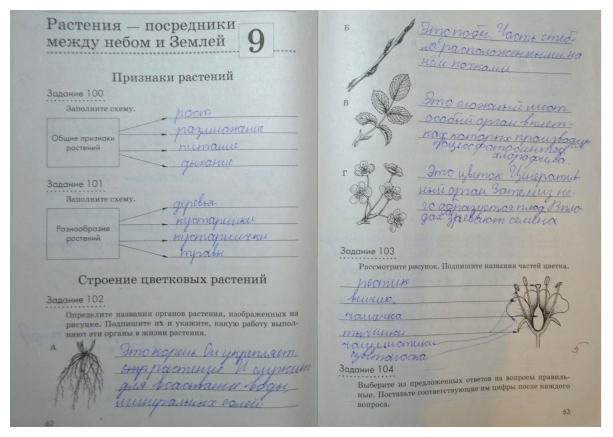 Растения — посредники
между небом и Землей
9
Признаки растений
Задание 100
Заполните схему.
Общие признаки
растений
рост
размножение
питание
дыхание
Задание 101
Заполните схему.
Разнообразие
растений
деревья
кустарники
кустарнички
травы
Строение цветковых растений
Задание 102
Определите названия органов растения, изображенных на
рисунке. Подпишите их и укажите, какую работу выпол-
няют эти органы в жизни растения.
А
Это корень Он укрепляет
растение И служит
для всасывания воды
минеральных солей
62
Б
Это побег. Часть стеб-
ля расположенными на
нём почками
В
Это сложный лист
особый орган в клет-
ках которых производит
процесс фотосинтеза
хлорофила.
Г
Это цветок Генератив
ный орган Затем из не-
го образуется плод В пло-
дах зревают семена
Задание 103
Рассмотрите рисунок. Подпишите названия частей цветка.
пестик
венчик
чашечка
тычинки
чашелистики
цветоноска
5
Задание 104
Выберите из предложенных ответов на вопросы правиль-
ные. Поставьте соответствующие им цифры после каждого
вопроса.
63